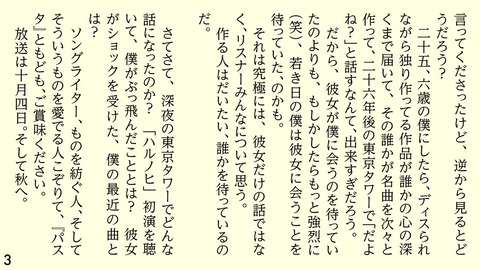 言ってくださったけど、逆から見るとど
うだろう?
　二十五、六歳の僕にしたら、ディスられ
ながら独り作ってる作品が誰かの心の深
くまで届いて、その誰かが名曲を次々と
作って、二十六年後の東京タワーで「だよ
ね?」と話すなんて、出来すぎだろう。
　だから、彼女が僕に会うのを待ってい
たのよりも、もしかしたらもっと強烈に
(笑)、若き日の僕は彼女に会うことを
待っていた、のかも。
　それは究極には、彼女だけの話ではな
く、リスナーみんなについて思う。
　作る人はだいたい、誰かを待っているの
だ。
　さてさて、深夜の東京タワーでどんな
話になったのか?　「ハルノヒ」初演を聴
いて、僕がぶっ飛んだこととは?　彼女
がショックを受けた、僕の最近の曲と
は?
　ソングライター、ものを紡ぐ人、そして
そういうものを愛でる人こぞりて、『パス
タ』ともども、ご賞味ください。
　放送は十月四日。そして秋へ。
3